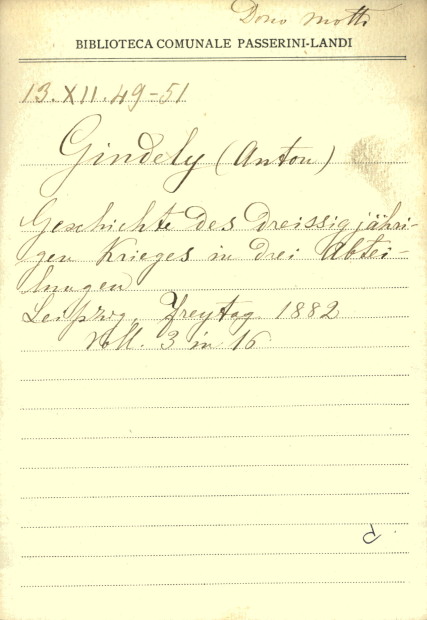 Dono Motti
BIBLIOTECA COMUNALE PASSERINI-LANDI
13.XII.49-51
Gindely (Anton)
Geschichte des Dreissigjähri-
gen Krieges in drei Abtei-
lungen
Leipzig, Freytag 1882
Voll. 3 in 16
d